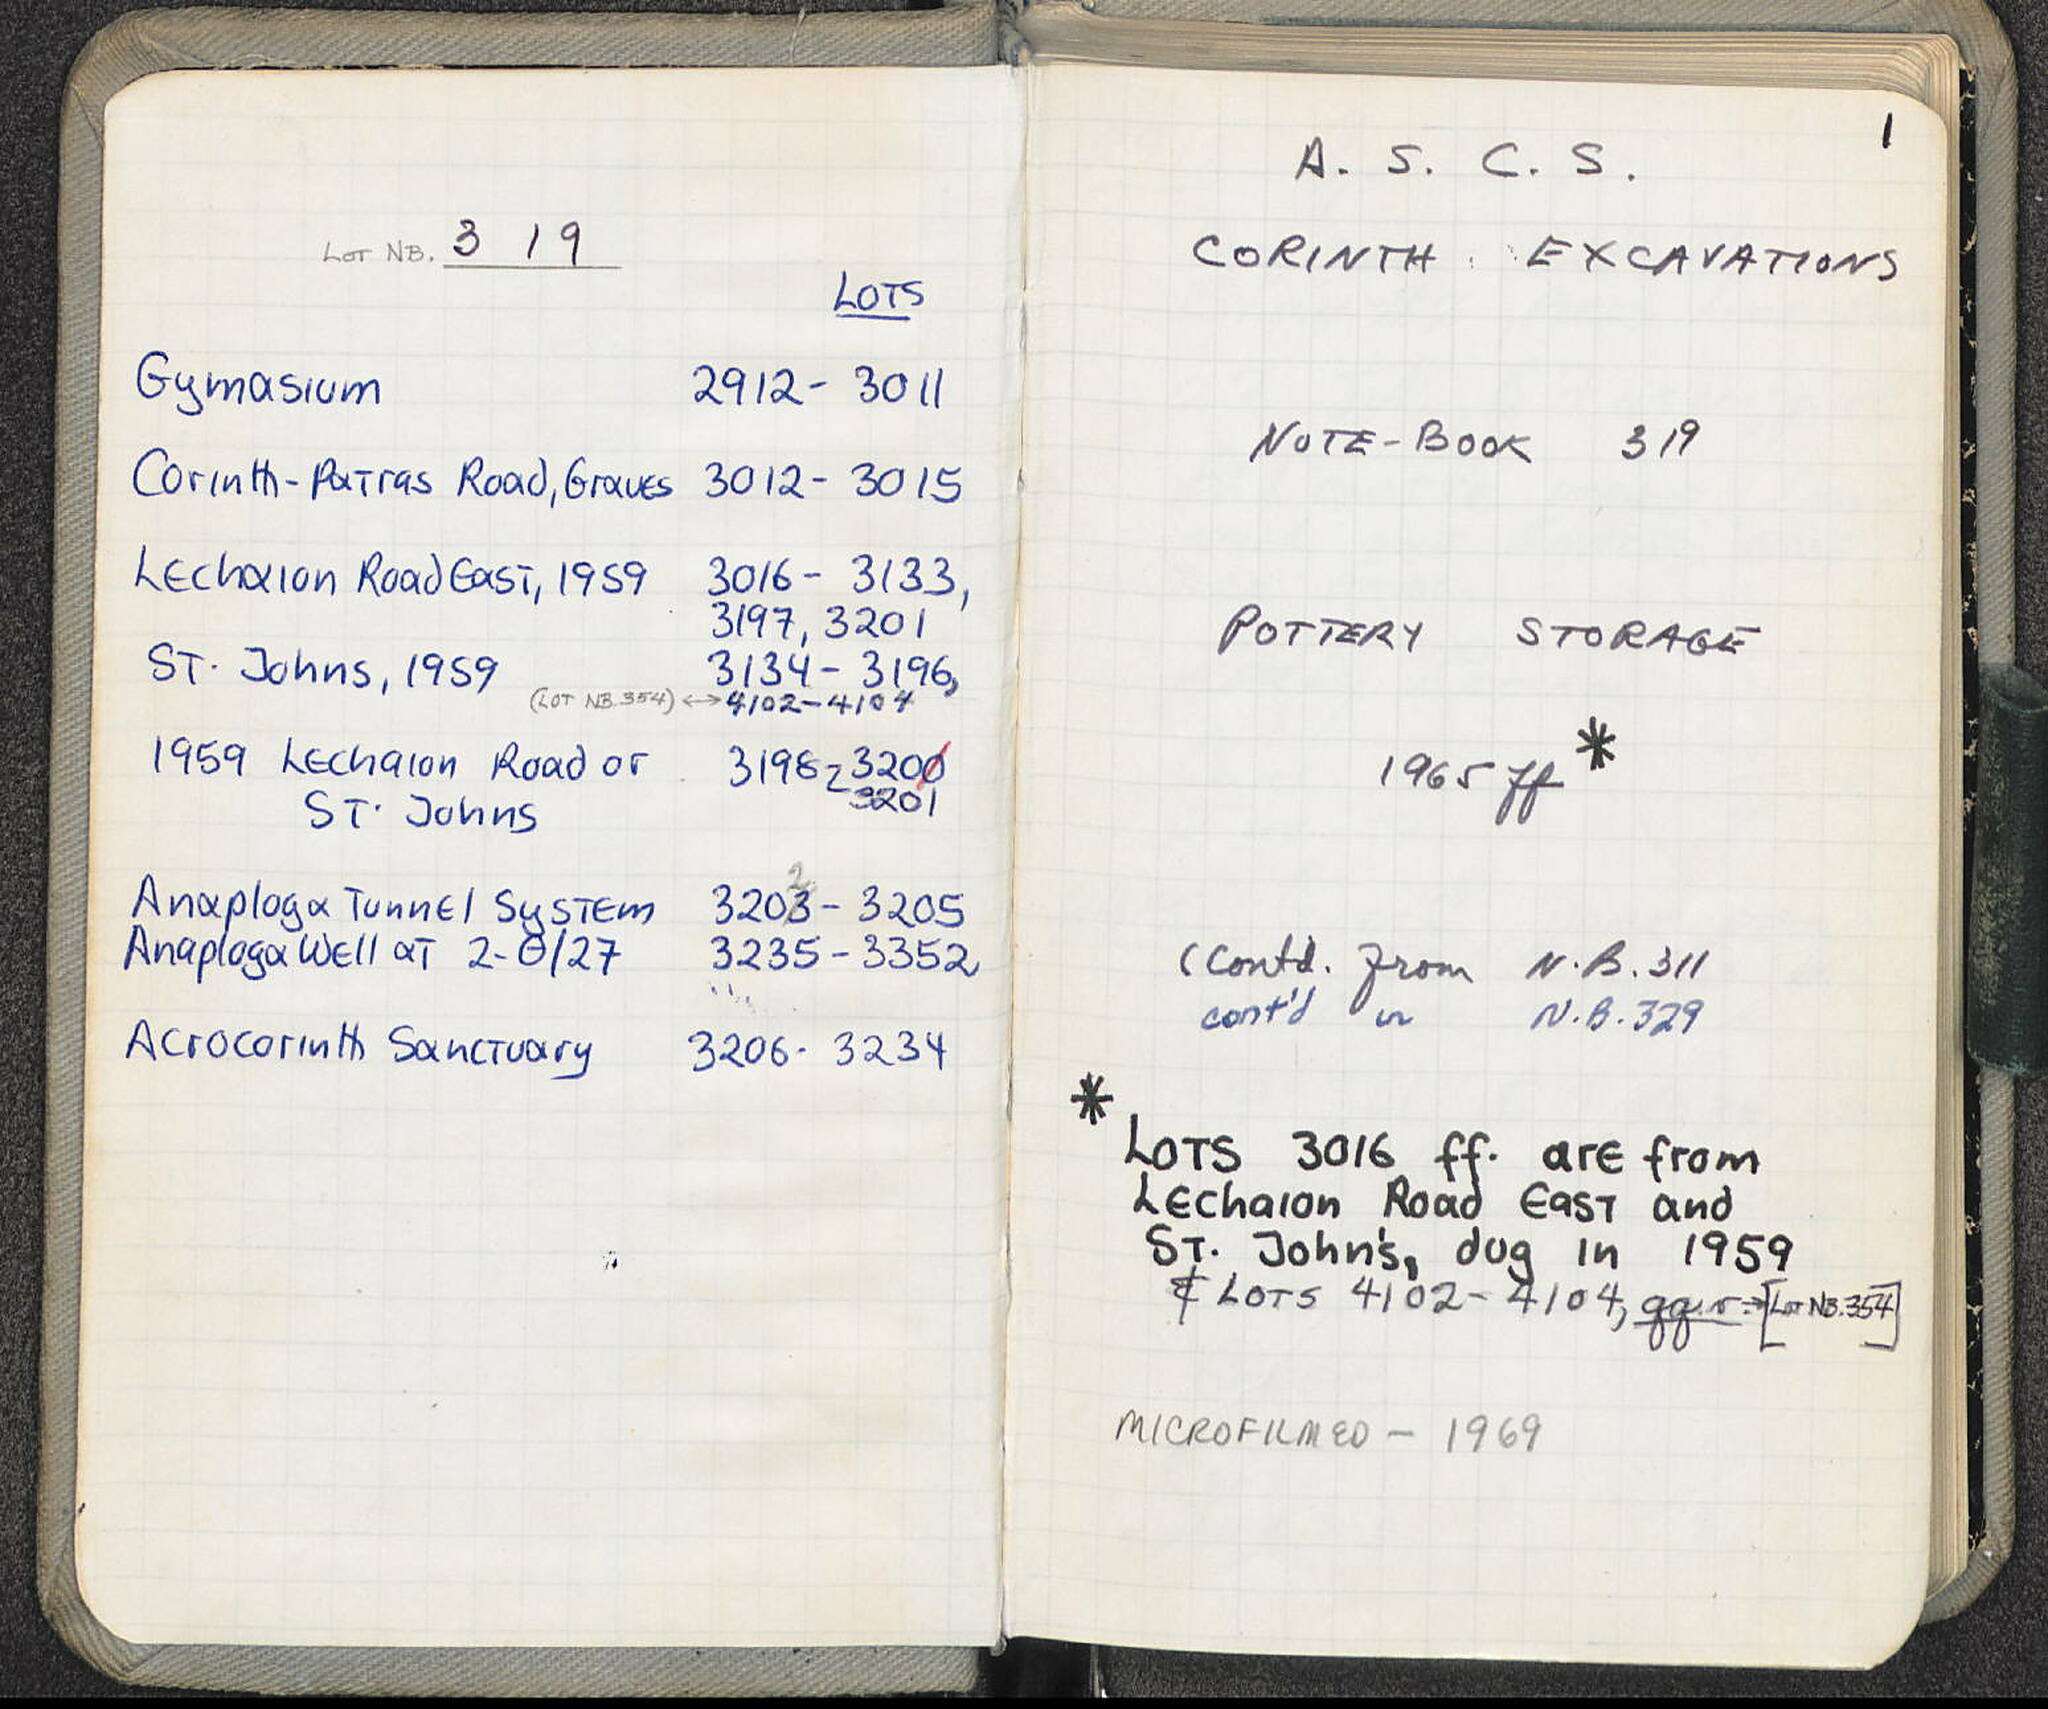 LOT NB. 3 19
LOTS
Gymasium 2912 - 3011
Corinth-Patras Road, Graves 3012 - 3015
Lechaion Road East, 1959 3016 - 3133,
3197, 3201
St. Johns, 1959 3134 - 3196,
(LOT NB. 354) ↔ 4102-4104
1959 Lechaion Road or 3198 - 3200
St. Johns 3201
2
Anaploga Tunnel System 3203 - 3205
Anaploga Well at 2-Θ/27 3235 - 3352
Acrocorinth Sanctuary 3206 - 3234
1
A. S. C. S.
CORINTH EXCAVATIONS
NOTE-BOOK 319
POTTERY STORAGE
1965 ff *
(Contd. from N.B. 311
cont'd in N.B. 329
*
Lots 3016 ff. are from
Lechaion Road East and
St. John's, dug in 1959
& LOTS 4102-4104, qq.v. → [LOT NB. 354]
MICROFILMED - 1969